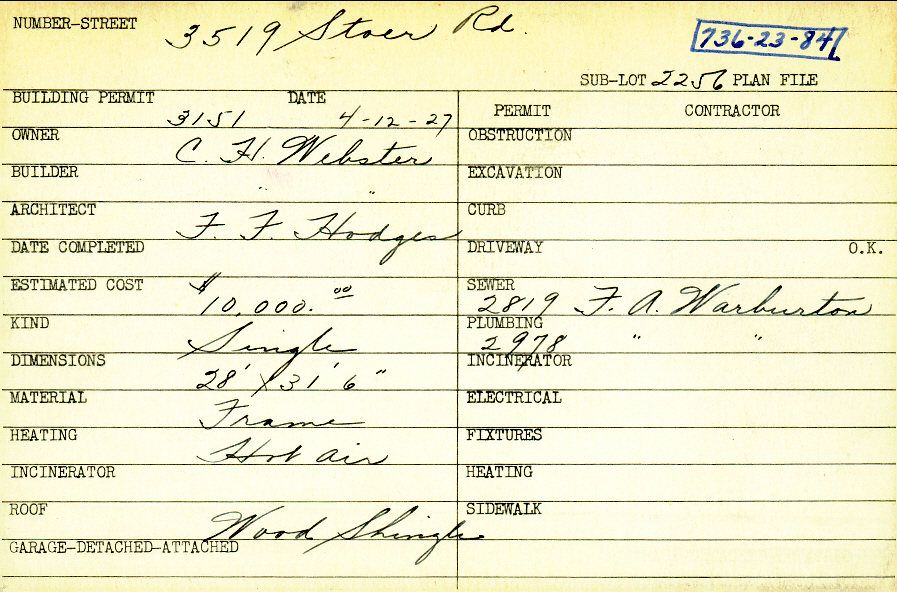 NUMBER-STREET 3519 Stoer Rd.
736-23-84
SUB-LOT 2256 PLAN FILE
BUILDING PERMIT 3151 DATE 4-12-27
PERMIT CONTRACTOR
OWNER C. H. Webster
OBSTRUCTION
BUILDER " "
EXCAVATION
ARCHITECT F. F. Hodges
CURB
DATE COMPLETED
DRIVEWAY O.K.
ESTIMATED COST $10,000.00
SEWER 2819 F. A. Warburton
KIND Single
PLUMBING 2978 " "
DIMENSIONS 28' X 31' 6"
INCINERATOR
MATERIAL Frame
ELECTRICAL
HEATING Hot air
FIXTURES
INCINERATOR
HEATING
ROOF Wood Shingle
SIDEWALK
GARAGE-DETACHED-ATTACHED